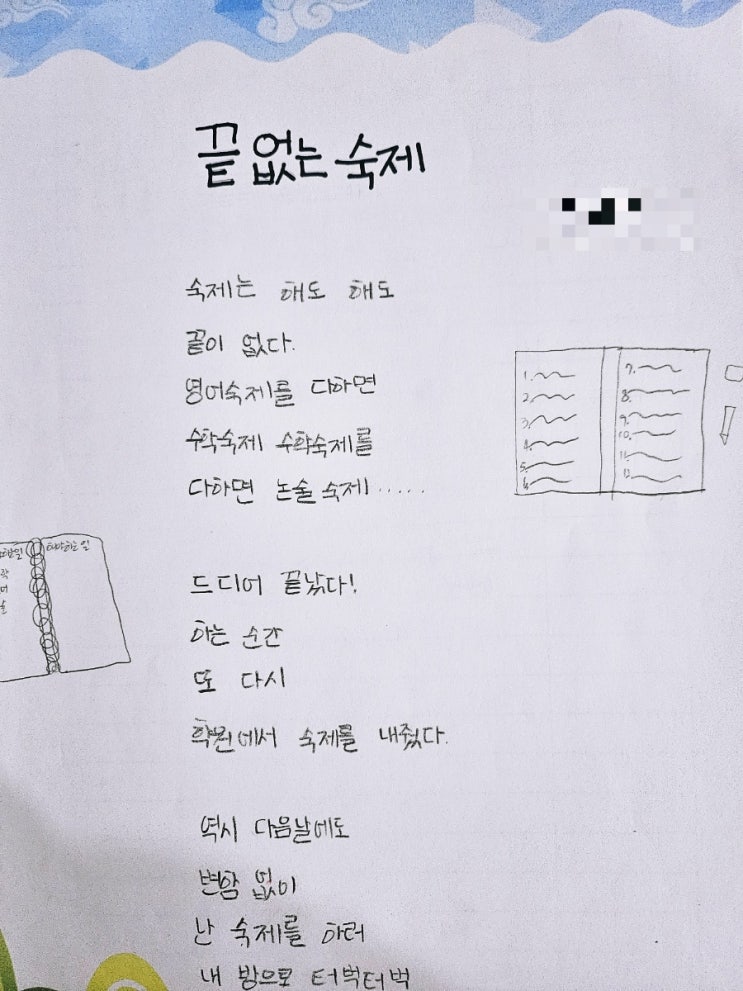 끝 없는 숙제
숙제는 해도 해도
끝이 없다.
영어숙제를 다하면
수학숙제 수학숙제를
다하면 논술 숙제......
드디어 끝났다!
하는 순간
또 다시
학원에서 숙제를 내줬다.
역시 다음날에도
변함 없이
난 숙제를 하러
내 방으로 터벅터벅
1.
2.
3.
4.
5.
6.
7.
8.
9.
10.
11.
12.
해야하는 일